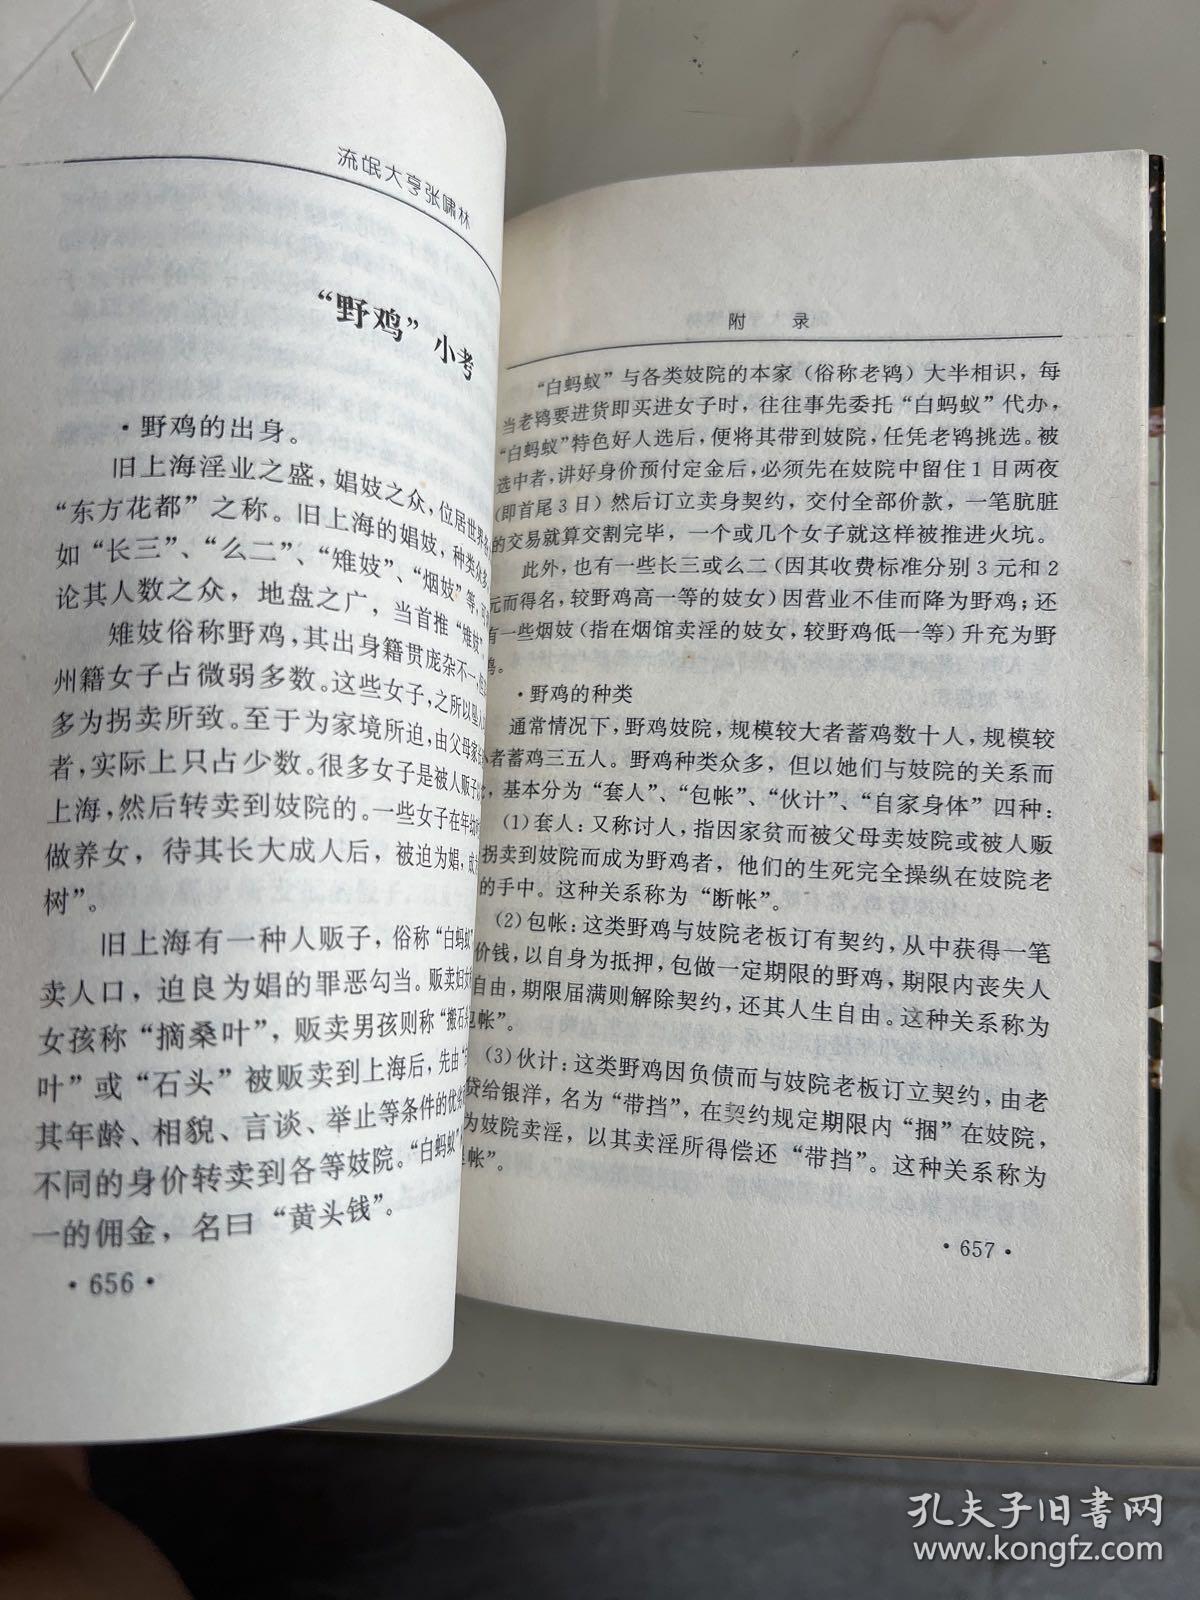 流氓大亨张啸林
“野鸡”小考
·野鸡的出身。
旧上海淫业之盛，娼妓之众，位居世界
“东方花都”之称。旧上海的娼妓，种类众多
如“长三”、“么二”、“雉妓”、“烟妓”等，可
论其人数之众，地盘之广，当首推“雉妓”
雉妓俗称野鸡，其出身籍贯庞杂不一，
州籍女子占微弱多数。这些女子，之所以坠
多为拐卖所致。至于为家境所迫，由父母家
者，实际上只占少数。很多女子是被人贩子
上海，然后转卖到妓院的。一些女子在年幼
做养女，待其长大成人后，被迫为娼，成
树”。
旧上海有一种人贩子，俗称“白蚂蚁”
卖人口，迫良为娼的罪恶勾当。贩卖妇女
女孩称“摘桑叶”，贩卖男孩则称“搬石
叶”或“石头”被贩卖到上海后，先由“
其年龄、相貌、言谈、举止等条件的优
不同的身价转卖到各等妓院。“白蚂蚁”
一的佣金，名曰“黄头钱”。
·656·
附 录
“白蚂蚁”与各类妓院的本家（俗称老鸨）大半相识，每
当老鸨要进货即买进女子时，往往事先委托“白蚂蚁”代办，
“白蚂蚁”特色好人选后，便将其带到妓院，任凭老鸨挑选。被
选中者，讲好身价预付定金后，必须先在妓院中留住1日两夜
（即首尾3日）然后订立卖身契约，交付全部价款，一笔肮脏
的交易就算交割完毕，一个或几个女子就这样被推进火坑。
此外，也有一些长三或么二（因其收费标准分别3元和2
元而得名，较野鸡高一等的妓女）因营业不佳而降为野鸡；还
有一些烟妓（指在烟馆卖淫的妓女，较野鸡低一等）升充为野
鸡。
·野鸡的种类
通常情况下，野鸡妓院，规模较大者蓄鸡数十人，规模较
者蓄鸡三五人。野鸡种类众多，但以她们与妓院的关系而
，基本分为“套人”、“包帐”、“伙计”、“自家身体”四种：
（1）套人：又称讨人，指因家贫而被父母卖妓院或被人贩
拐卖到妓院而成为野鸡者，他们的生死完全操纵在妓院老
的手中。这种关系称为“断帐”。
（2）包帐：这类野鸡与妓院老板订有契约，从中获得一笔
价钱，以自身为抵押，包做一定期限的野鸡，期限内丧失人
自由，期限届满则解除契约，还其人生自由。这种关系称为
包帐”。
（3）伙计：这类野鸡因负债而与妓院老板订立契约，由老
贷给银洋，名为“带挡”，在契约规定期限内“捆”在妓院，
为妓院卖淫，以其卖淫所得偿还“带挡”。这种关系称为
帐”。
·657·
孔夫子旧书网
www.kongfz.com